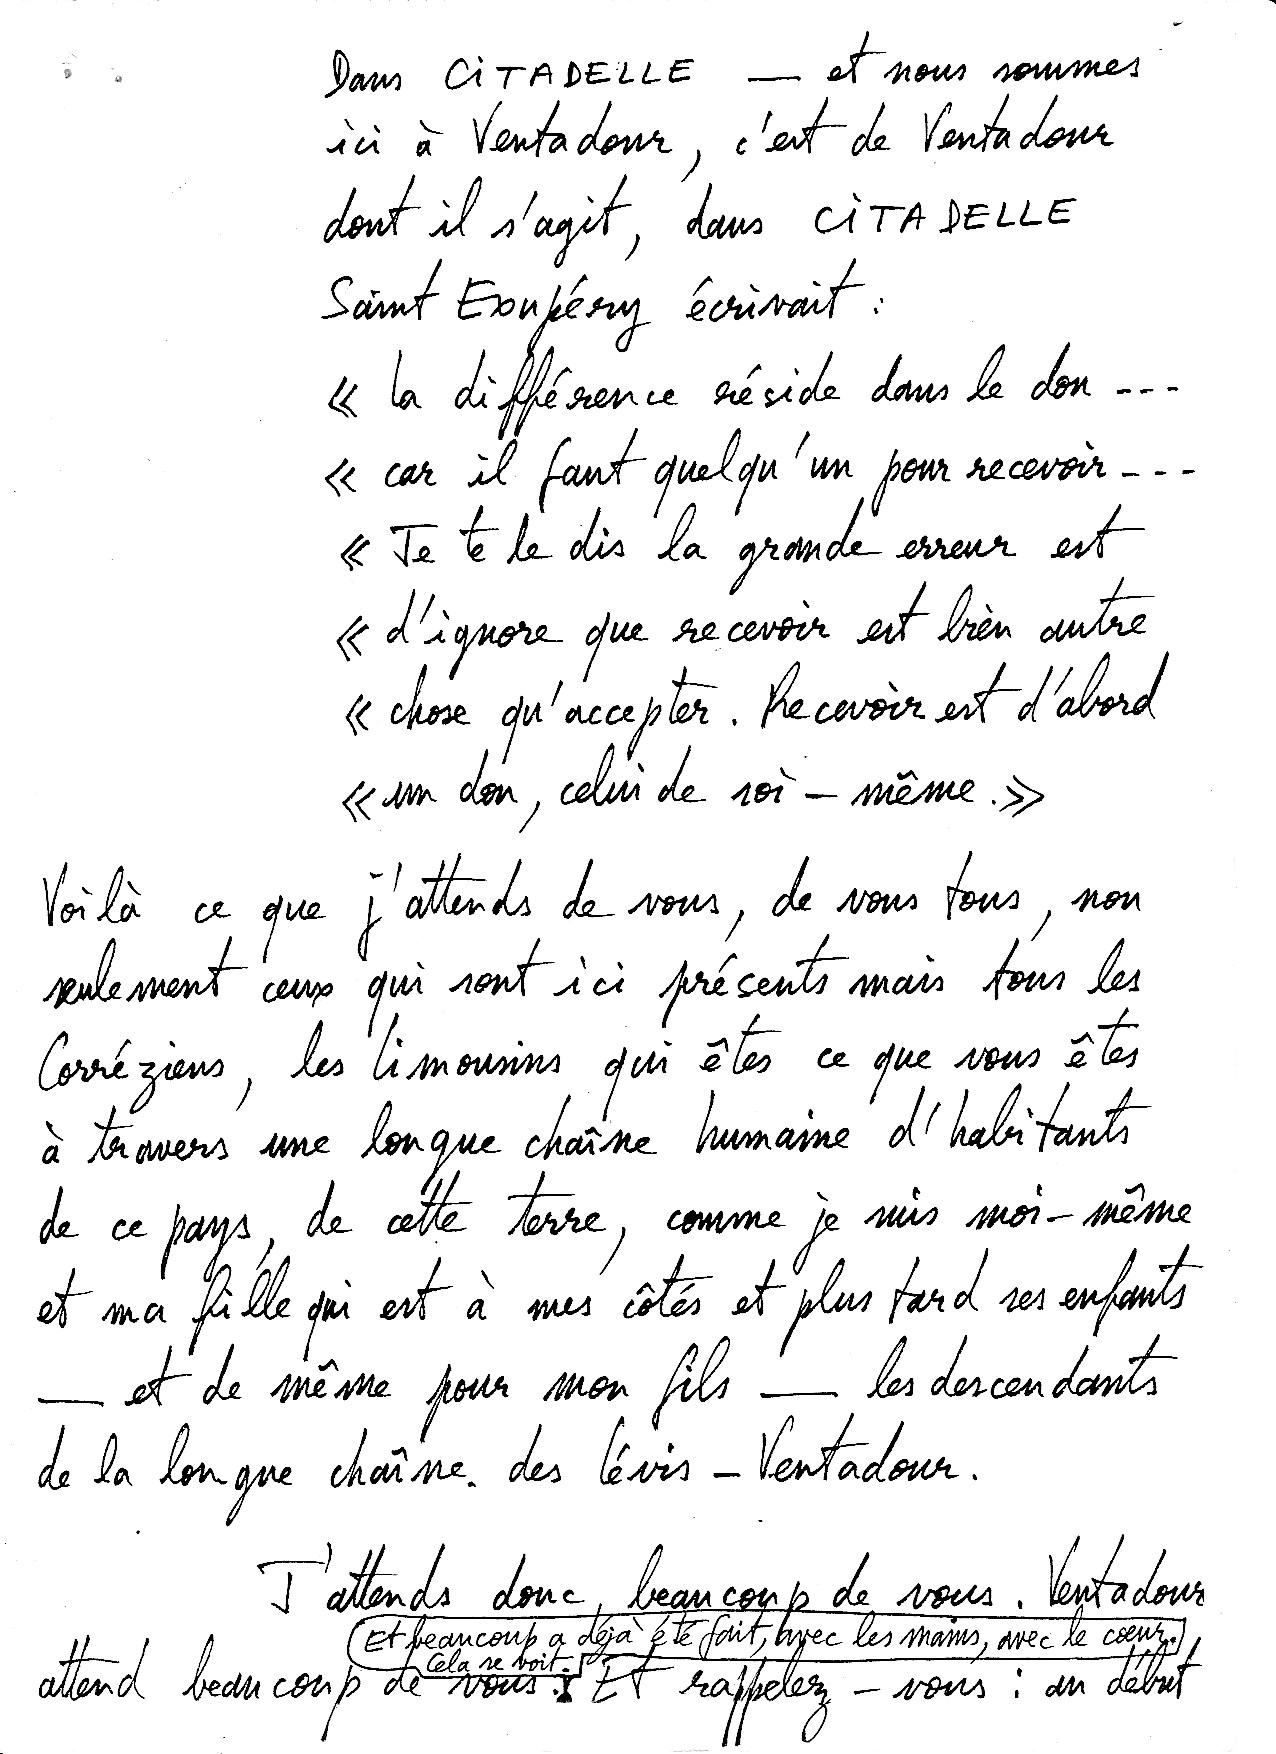 Dans CITADELLE — et nous sommes
ici à Ventadour, c'est de Ventadour
dont il s'agit, dans CITADELLE
Saint Exupéry écrivait :
« la différence réside dans le don ---
« car il faut quelqu'un pour recevoir ---
« Je te le dis la grande erreur est
« d'ignore que recevoir est bien autre
« chose qu'accepter. Recevoir est d'abord
« un don, celui de soi - même. »
Voilà ce que j'attends de vous, de vous tous, non
seulement ceux qui sont ici présents mais tous les
Corréziens, les limousins qui êtes ce que vous êtes
à travers une longue chaîne humaine d'habitants
de ce pays, de cette terre, comme je suis moi-même
et ma fille qui est à mes côtés et plus tard ses enfants
— et de même pour mon fils — les descendants
de la longue chaîne. des lévis - Ventadour.
J'attends donc, beaucoup de vous. Ventadour
Et beaucoup a déjà été fait, avec les mains, avec le cœur.
Cela se voit.
attend beaucoup de vous. Et rappelez - vous : au début